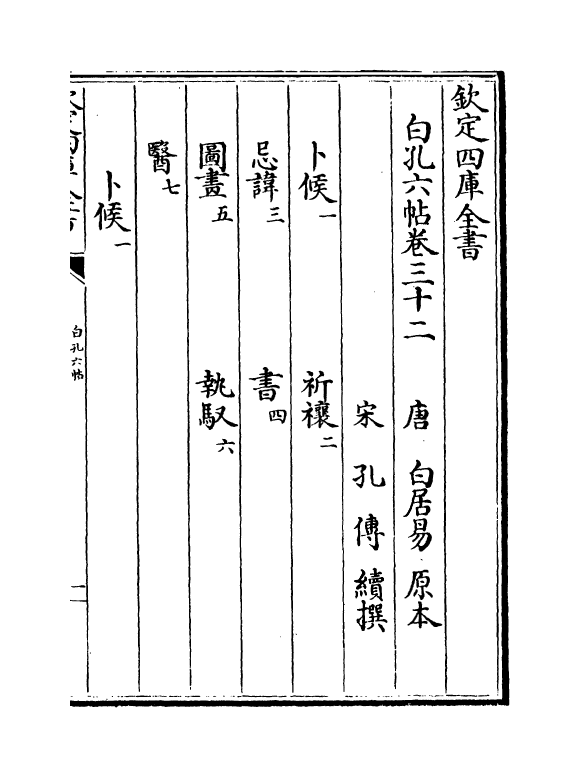 欽定四庫全書
白孔六帖卷三十二 唐 白居易 原本
宋 孔傳 續撰
卜候一 祈禳二
忌諱三 書四
圖畫五 執馭六
醫七
卜候一
白孔六帖
一